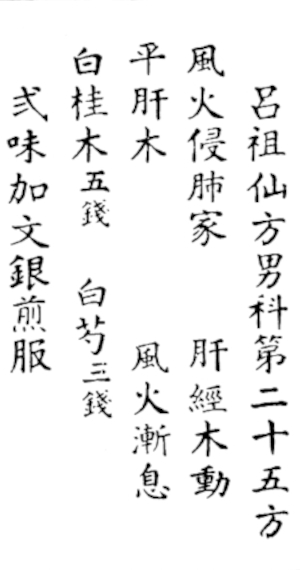 呂祖仙方男科第二十五方
風火侵肺家 肝經木動
平肝木 風火漸息
白桂木五錢 白芍三錢
弍味加文銀煎服